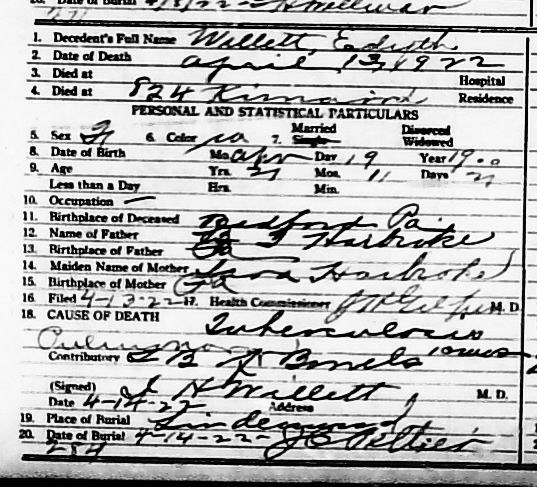 20. Date of Burial 4/13/22
1. Decedent's Full Name Willett, Edyth
2. Date of Death April 13, 1922
3. Died at Hospital
4. Died at 824 Residence
PERSONAL AND STATISTICAL PARTICULARS
5. Sex F 6. Color W 7. Married Single Divorced Widowed
8. Date of Birth Mo. Apr Day 19 Year 1900
9. Age Yrs. 21 Mos. 11 Days
Less than a Day Hrs. Min.
10. Occupation —
11. Birthplace of Deceased Bedford Pa.
12. Name of Father
13. Birthplace of Father Pa
14. Maiden Name of Mother
15. Birthplace of Mother Pa
16. Filed 4-13-22 17. Health Commissioner M. D.
18. CAUSE OF DEATH Tuberculosis
Pulmonary
Contributory T B of Bowels
(Signed) I H Willett M. D.
Date 4-14-22 Address
19. Place of Burial Lindenwood
20. Date of Burial 4-14-22- J C Peltier
284